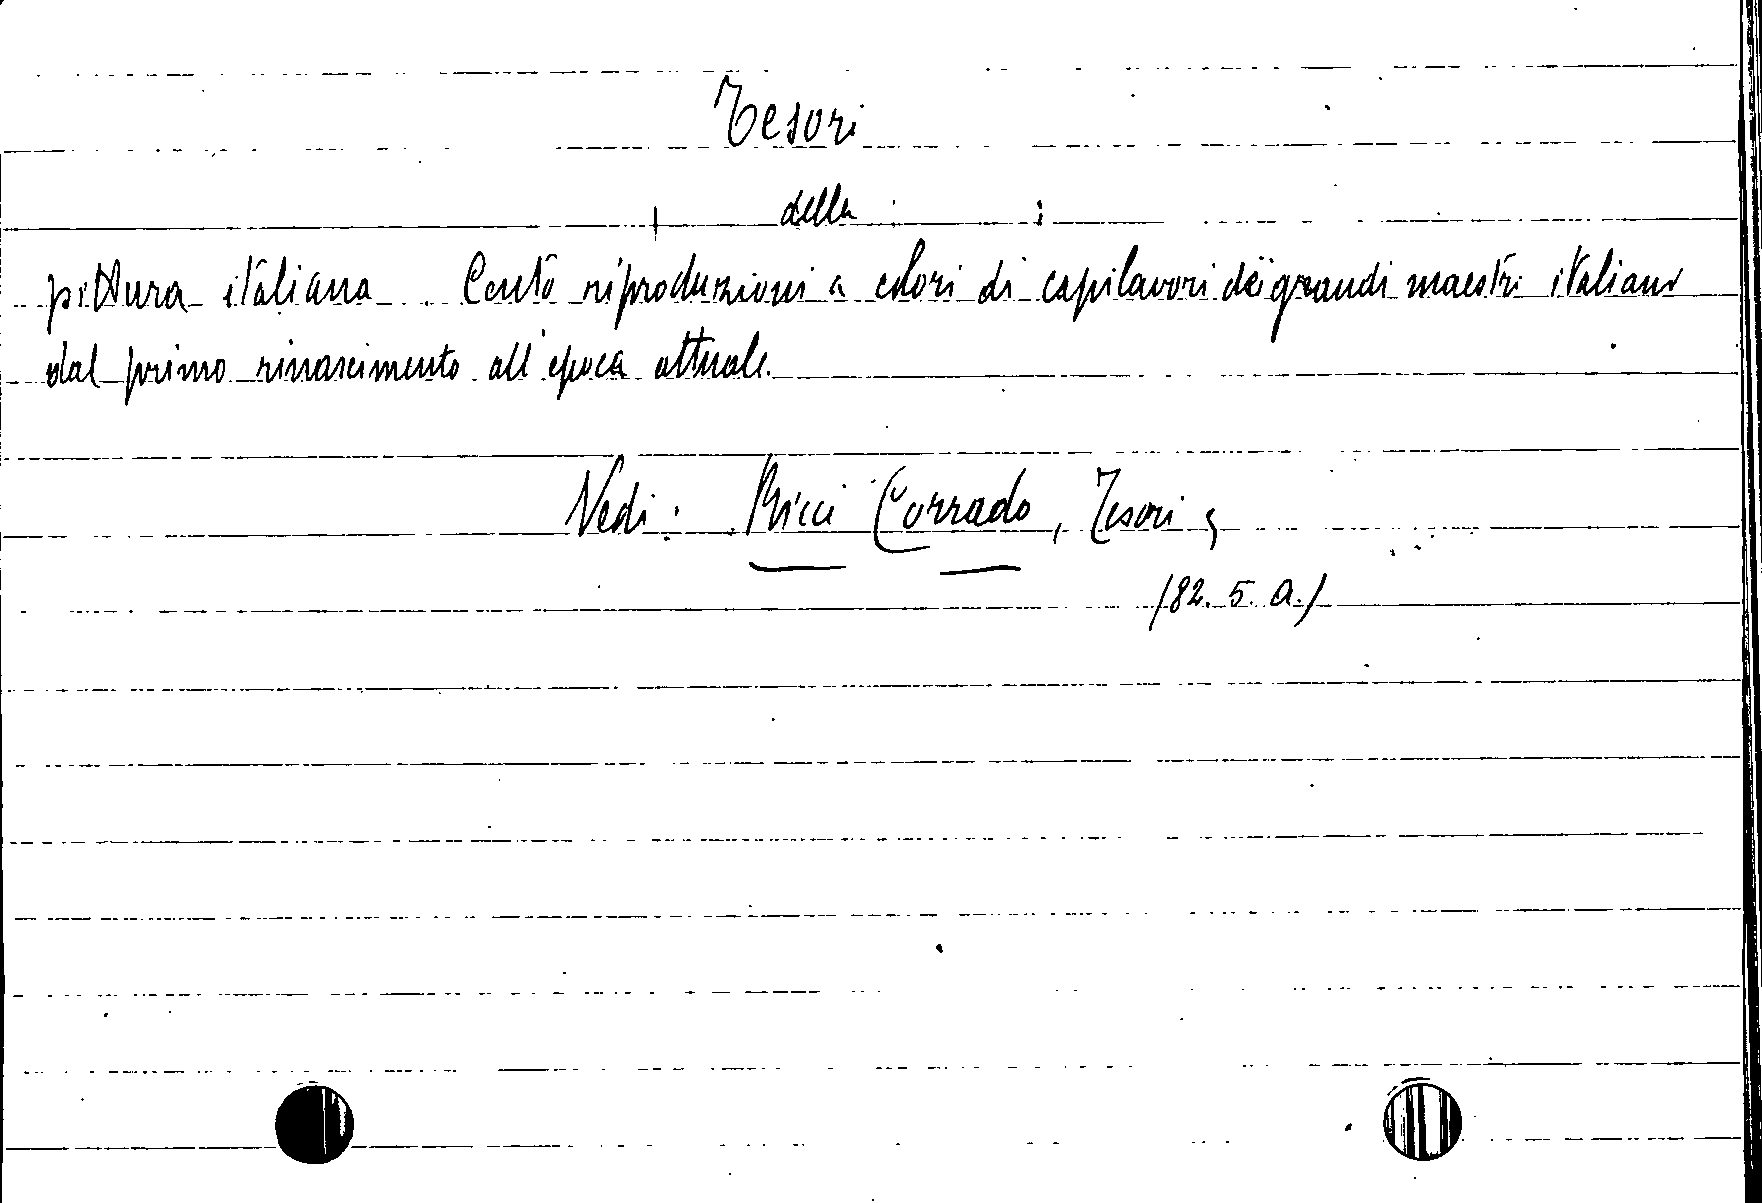 Tesori
della
pittura italiana Cento riproduzioni a colori di capilavori dei grandi maestri italiani
dal primo rinascimento all'epoca attuale.
Vedi: Ricci Corrado, Tesori ;
/82. 5. a./